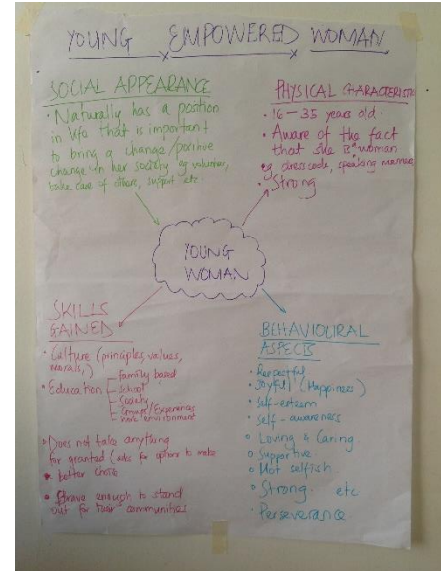 YOUNG EMPOWERED WOMAN
SOCIAL APPEARANCE
• Naturally has a position
in life that is important
to bring a change/positive
change in her society eg volunteer,
take care of others, support etc.
PHYSICAL CHARACTERISTIC
• 16 – 35 years old.
• Aware of the fact
that she is woman
eg dresscode, speaking manner,
• Strong
YOUNG
WOMAN
SKILLS
GAINED
• Culture (principles, values,
morals,)
• Education
family based
school
society
Groups/Experiences
environment
• Does not take anything
for granted (asks for options to make
better choice
• Brave enough to stand
out for their communities
BEHAVIOURAL
ASPECTS
• Respectful
• Joyful (Happiness)
• Self-esteem
• Self-awareness
• Loving & Caring
• Supportive
• Not selfish
• Strong etc
• Perseverance